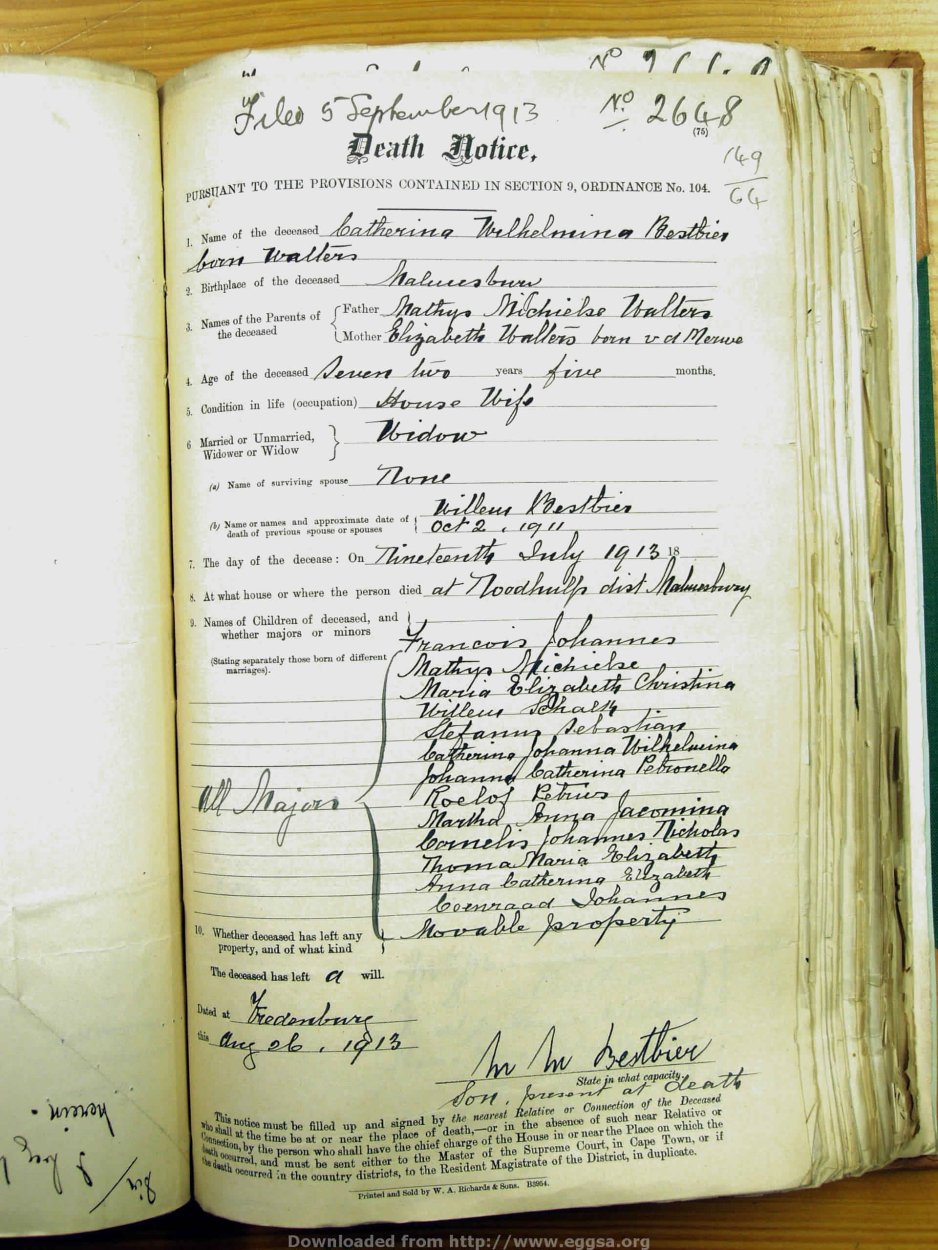 Filed 5 September 1913 No 2648
(75)
Death Notice,
149
64
PURSUANT TO THE PROVISIONS CONTAINED IN SECTION 9, ORDINANCE No. 104.
1. Name of the deceased Catherina Wilhelmina Bestbier
born Walters
2. Birthplace of the deceased Malmesbury
3. Names of the Parents of the deceased
Father Mathys Michielse Walters
Mother Elizabeth Walters born v d Merwe
4. Age of the deceased Seven two years five months.
5. Condition in life (occupation) House Wife
6 Married or Unmarried, Widower or Widow } Widow
(a) Name of surviving spouse None
(b) Name or names and approximate date of death of previous spouse or spouses
Willem Bestbier
Oct 2, 1911
7. The day of the decease: On Nineteenth July 1913 18
8. At what house or where the person died at Noodhulp dist Malmesbury
9. Names of Children of deceased, and whether majors or minors
(Stating separately those born of different marriages).
Francois Johannes
Mathys Michielse
Maria Elizabeth Christina
Willem Schalk
Stefanus Sebastian
Catherina Johanna Wilhelmina
Johanna Catherina Petronella
All Majors
Roelof Petrus
Martha Anna Jacomina
Cornelis Johannes Nicholas
Thoma Maria Elizabeth
Anna Catherina Elizabeth
Coenraad Johannes
10. Whether deceased has left any property, and of what kind } Movable property
The deceased has left a will.
Dated at Vredenburg
this Aug 26, 1913
M M Bestbier
State in what capacity.
Son, present at death
This notice must be filled up and signed by the nearest Relative or Connection of the Deceased
who shall at the time be at or near the place of death,—or in the absence of such near Relative or
Connection, by the person who shall have the chief charge of the House in or near the Place on which the
death occurred, and must be sent either to the Master of the Supreme Court, in Cape Town, or if
the death occurred in the country districts, to the Resident Magistrate of the District, in duplicate.
Printed and Sold by W. A. Richards & Sons. B3954.
Downloaded from http://www.eggsa.org